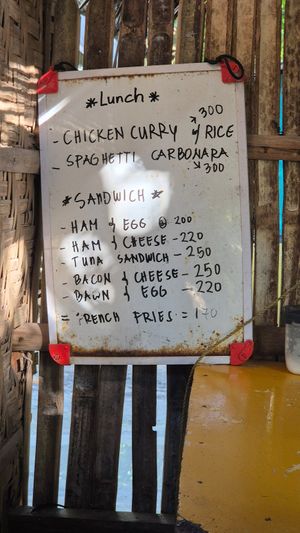 *Lunch*
300
- CHICKEN CURRY w/ RICE
- SPAGHETTI CARBONARA
300
*SANDWICH*
- HAM & EGG @ 200
- HAM & CHEESE - 220
- TUNA SANDWICH - 250
- BACON & CHEESE - 250
- BACON & EGG - 220
= FRENCH FRIES = 170